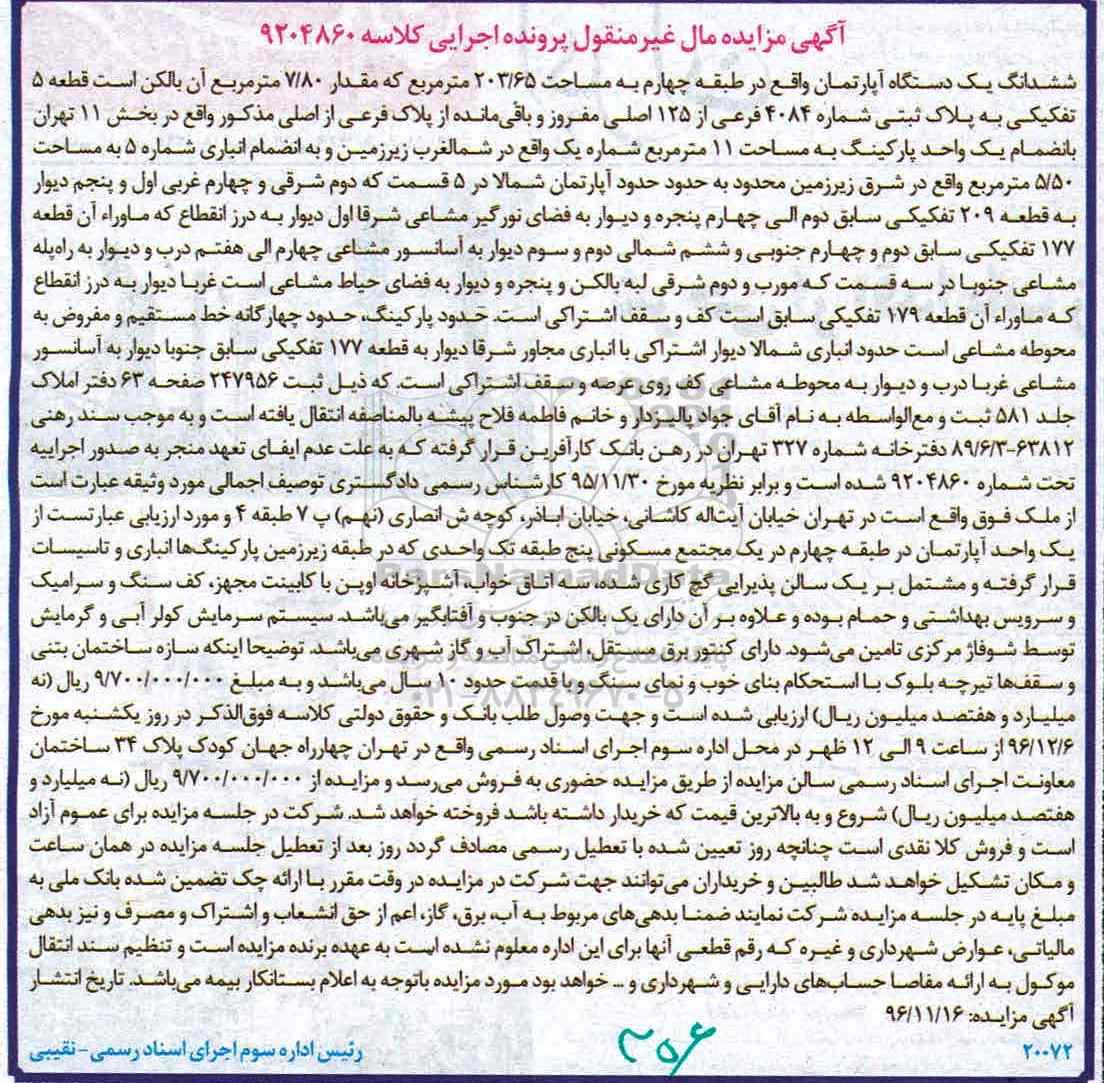 آگهی مزایده مال غیر منقول پرونده اجرایی کلاسه ۹۲۰۴۸۶۰
ششدانگ یک دستگاه آپارتمان واقع در طبقه چهارم به مساحت ۲۰۳/۶۵ مترمربع که مقدار ۷/۸۰ مترمربع آن بالکن است قطعه ۵
تفکیکی به پلاک ثبتی شماره ۴۰۸۴ فرعی از ۱۲۵ اصلی مفروز و باقی‌مانده از پلاک فرعی از اصلی مذکور واقع در بخش ۱۱ تهران
بانضمام یک واحد پارکینگ به مساحت ۱۱ مترمربع شماره یک واقع در شمالغرب زیرزمین و به انضمام انباری شماره ۵ به مساحت
۵/۵۰ مترمربع واقع در شرق زیرزمین محدود به حدود حدود آپارتمان شمالا در ۵ قسمت که دوم شرقی و چهارم غربی اول و پنجم دیوار
به قطعه ۲۰۹ تفکیکی سابق دوم الی چهارم پنجره و دیوار به فضای نورگیر مشاعی شرقا اول دیوار به درز انقطاع که ماوراء آن قطعه
۱۷۷ تفکیکی سابق دوم و چهارم جنوبی و ششم شمالی دوم و سوم دیوار به آسانسور مشاعی چهارم الی هفتم درب و دیوار به راه‌پله
مشاعی جنوبا در سه قسمت که مورب و دوم شرقی لبه بالکن و پنجره و دیوار به فضای حیاط مشاعی است غربا دیوار به درز انقطاع
که ماوراء آن قطعه ۱۷۹ تفکیکی سابق است کف و سقف اشتراکی است. حدود پارکینگ، حدود چهارگانه خط مستقیم و مفروض به
محوطه مشاعی است حدود انباری شمالا دیوار اشتراکی با انباری مجاور شرقا دیوار به قطعه ۱۷۷ تفکیکی سابق جنوبا دیوار به آسانسور
مشاعی غربا درب و دیوار به محوطه مشاعی کف روی عرصه و سقف اشتراکی است. که ذیل ثبت ۲۴۷۹۵۶ صفحه ۶۳ دفتر املاک
جلد ۵۸۱ ثبت و مع‌الواسطه به نام آقای جواد پالیزدار و خانم فاطمه فلاح پیشه بالمناصفه انتقال یافته است و به موجب سند رهنی
۶۳۸۱۲-۸۹/۶/۳ دفترخانه شماره ۳۲۷ تهران در رهن بانک کارآفرین قرار گرفته که به علت عدم ایفای تعهد منجر به صدور اجراییه
تحت شماره ۹۲۰۴۸۶۰ شده است و برابر نظریه مورخ ۹۵/۱۱/۳۰ کارشناس رسمی دادگستری توصیف اجمالی مورد وثیقه عبارت است
از ملک فوق واقع است در تهران خیابان آیت‌اله کاشانی، خیابان اباذر، کوچه ش انصاری (نهم) پ ۷ طبقه ۴ و مورد ارزیابی عبارتست از
یک واحد آپارتمان در طبقه چهارم در یک مجتمع مسکونی پنج طبقه تک واحدی که در طبقه زیرزمین پارکینگ‌ها انباری و تاسیسات
قرار گرفته و مشتمل بر یک سالن پذیرایی گچ کاری شده، سه اتاق خواب، آشپزخانه اوپن با کابینت مجهز، کف سنگ و سرامیک
و سرویس بهداشتی و حمام بوده و علاوه بر آن دارای یک بالکن در جنوب و آفتابگیر می‌باشد. سیستم سرمایش کولر آبی و گرمایش
توسط شوفاژ مرکزی تامین می‌شود. دارای کنتور برق مستقل، اشتراک آب و گاز شهری می‌باشد. توضیحا اینکه سازه ساختمان بتنی
و سقف‌ها تیرچه بلوک با استحکام بنای خوب و نمای سنگ و با قدمت حدود ۱۰ سال می‌باشد و به مبلغ ۹/۷۰۰/۰۰۰/۰۰۰ ریال (نه
میلیارد و هفتصد میلیون ریال) ارزیابی شده است و جهت وصول طلب بانک و حقوق دولتی کلاسه فوق‌الذکر در روز یکشنبه مورخ
۹۶/۱۲/۶ از ساعت ۹ الی ۱۲ ظهر در محل اداره سوم اجرای اسناد رسمی واقع در تهران چهارراه جهان کودک پلاک ۳۴ ساختمان
معاونت اجرای اسناد رسمی سالن مزایده از طریق مزایده حضوری به فروش می‌رسد و مزایده از ۹/۷۰۰/۰۰۰/۰۰۰ ریال (نه میلیارد و
هفتصد میلیون ریال) شروع و به بالاترین قیمت که خریدار داشته باشد فروخته خواهد شد. شرکت در جلسه مزایده برای عموم آزاد
است و فروش کلا نقدی است چنانچه روز تعیین شده با تعطیل رسمی مصادف گردد روز بعد از تعطیل جلسه مزایده در همان ساعت
و مکان تشکیل خواهد شد طالبین و خریداران می‌توانند جهت شرکت در مزایده در وقت مقرر با ارائه چک تضمین شده بانک ملی به
مبلغ پایه در جلسه مزایده شرکت نمایند ضمنا بدهی‌های مربوط به آب، برق، گاز، اعم از حق انشعاب و اشتراک و مصرف و نیز بدهی
مالیاتی، عوارض شهرداری و غیره که رقم قطعی آنها برای این اداره معلوم نشده است به عهده برنده مزایده است و تنظیم سند انتقال
موکول به ارائه مفاصا حساب‌های دارایی و شهرداری و ... خواهد بود مورد مزایده باتوجه به اعلام بستانکار بیمه می‌باشد. تاریخ انتشار
آگهی مزایده: ۹۶/۱۱/۱۶
۲۰۰۷۲
رئیس اداره سوم اجرای اسناد رسمی - نقیبی
ParsNamadData
۰۲۱-۸۸۳۴۹۶۷۰-۵